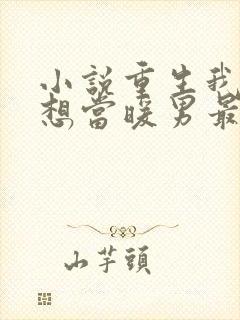 小說重生我
想當暖男最
山芋頭